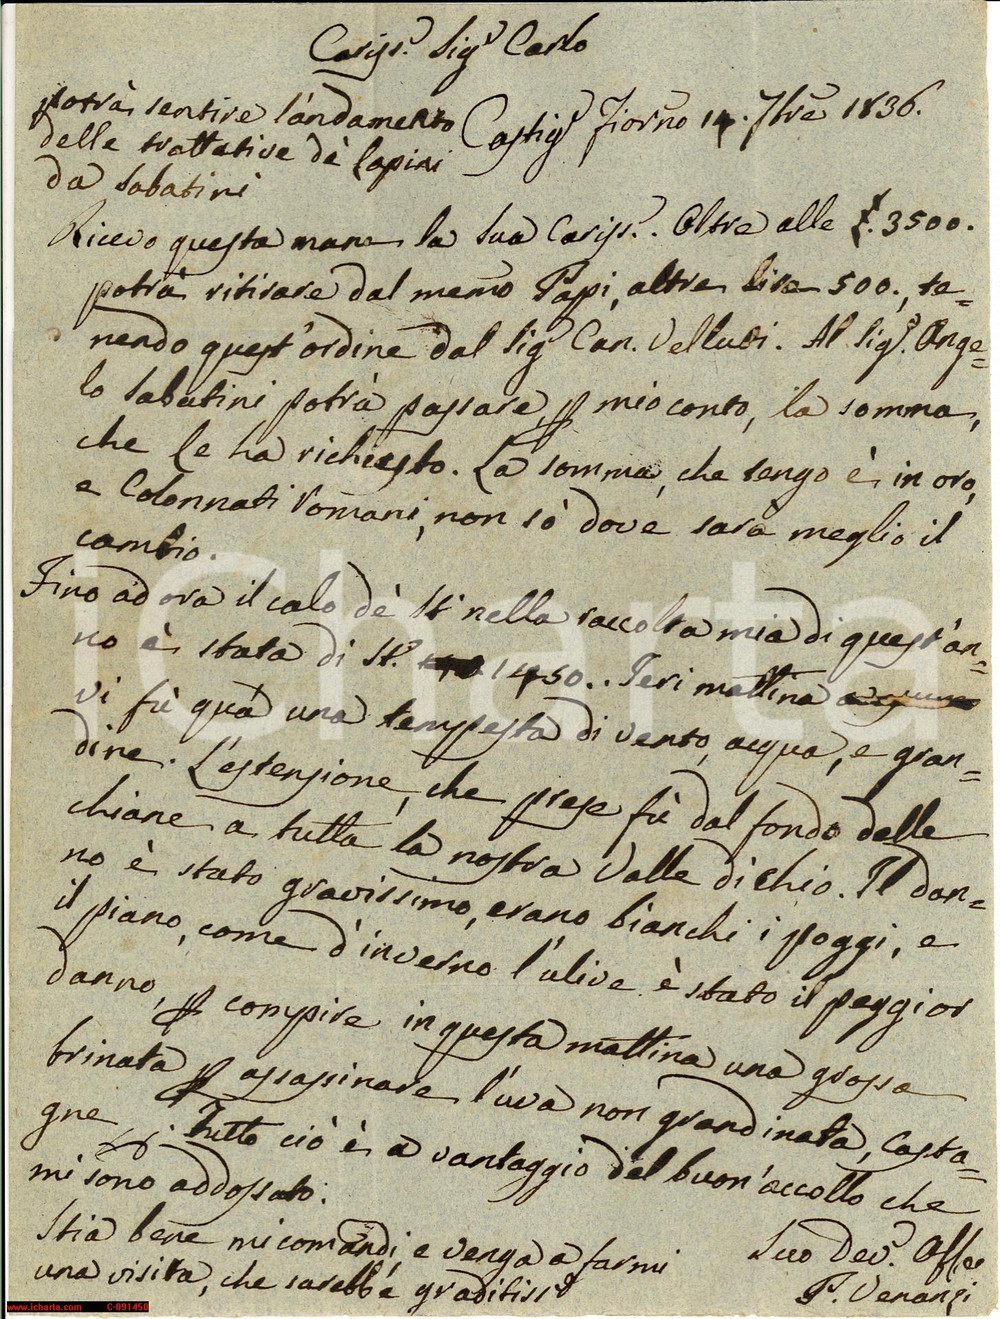 Cariss.º Sig.r Carlo
Castig.n Fiorno 14. 7bre 1836.
potrà sentire l'andamento
delle trattative de' Lapini
da Sabatini
Ricevo questa mane la Sua Cariss.ª. Oltre alle £. 3500.
potrà ritirare dal memo Papi, altre lire 500., te=
nendo quest'ordine dal Sig.r Can. Velluti. Al Sig.r Ange=
lo Sabatini potrà passare, p mio conto, la somma,
che Le ha richiesto. La somma, che tengo è in oro,
e Colonnati romani, non sò dove sarà meglio il
cambio.
Fino ad ora il calo dè St nella raccolta mia di quest'an=
no è stata di St. 1450.. Ieri mattina
vi fù quà una tempesta di vento, acqua, e gran=
dine. L'estensione, che prese fù dal fondo delle
chiane a tutta la nostra Valle di Chio. Il dan=
no è stato gravissimo, erano bianchi i poggi, e
il piano, come d'inverno l'ulive è stato il peggior
danno, p compire in questa mattina una grossa
brinata p assassinare l'uva non grandinata, casta=
gne. Tutto ciò è a vantaggio del buon'accollo che
mi sono addossato.
Stia bene mi comandi, e venga a farmi
una visita, che sarebbe graditiss.ª
Suo Dev.º Affe
F. Venanzi
iCharta
www.icharta.com C-091450